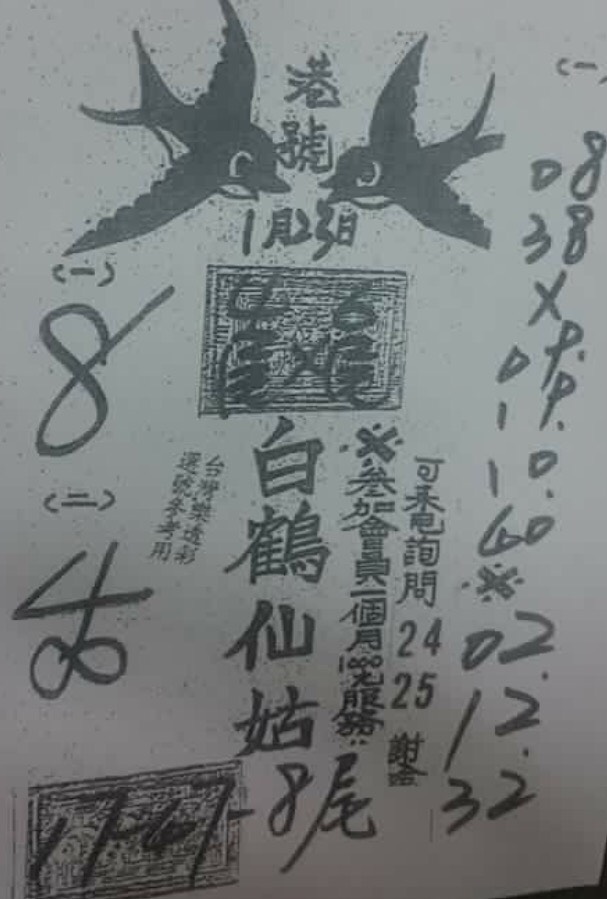 港號
1月23日
(一)
8
(二)
白鶴仙姑
台灣樂透彩
選號參考用
※參加會員一個月1000元服務
可來電詢問 24 25 謝
17-47-8尾
(一)
08
38
X
10
40
※
02.
12.
32